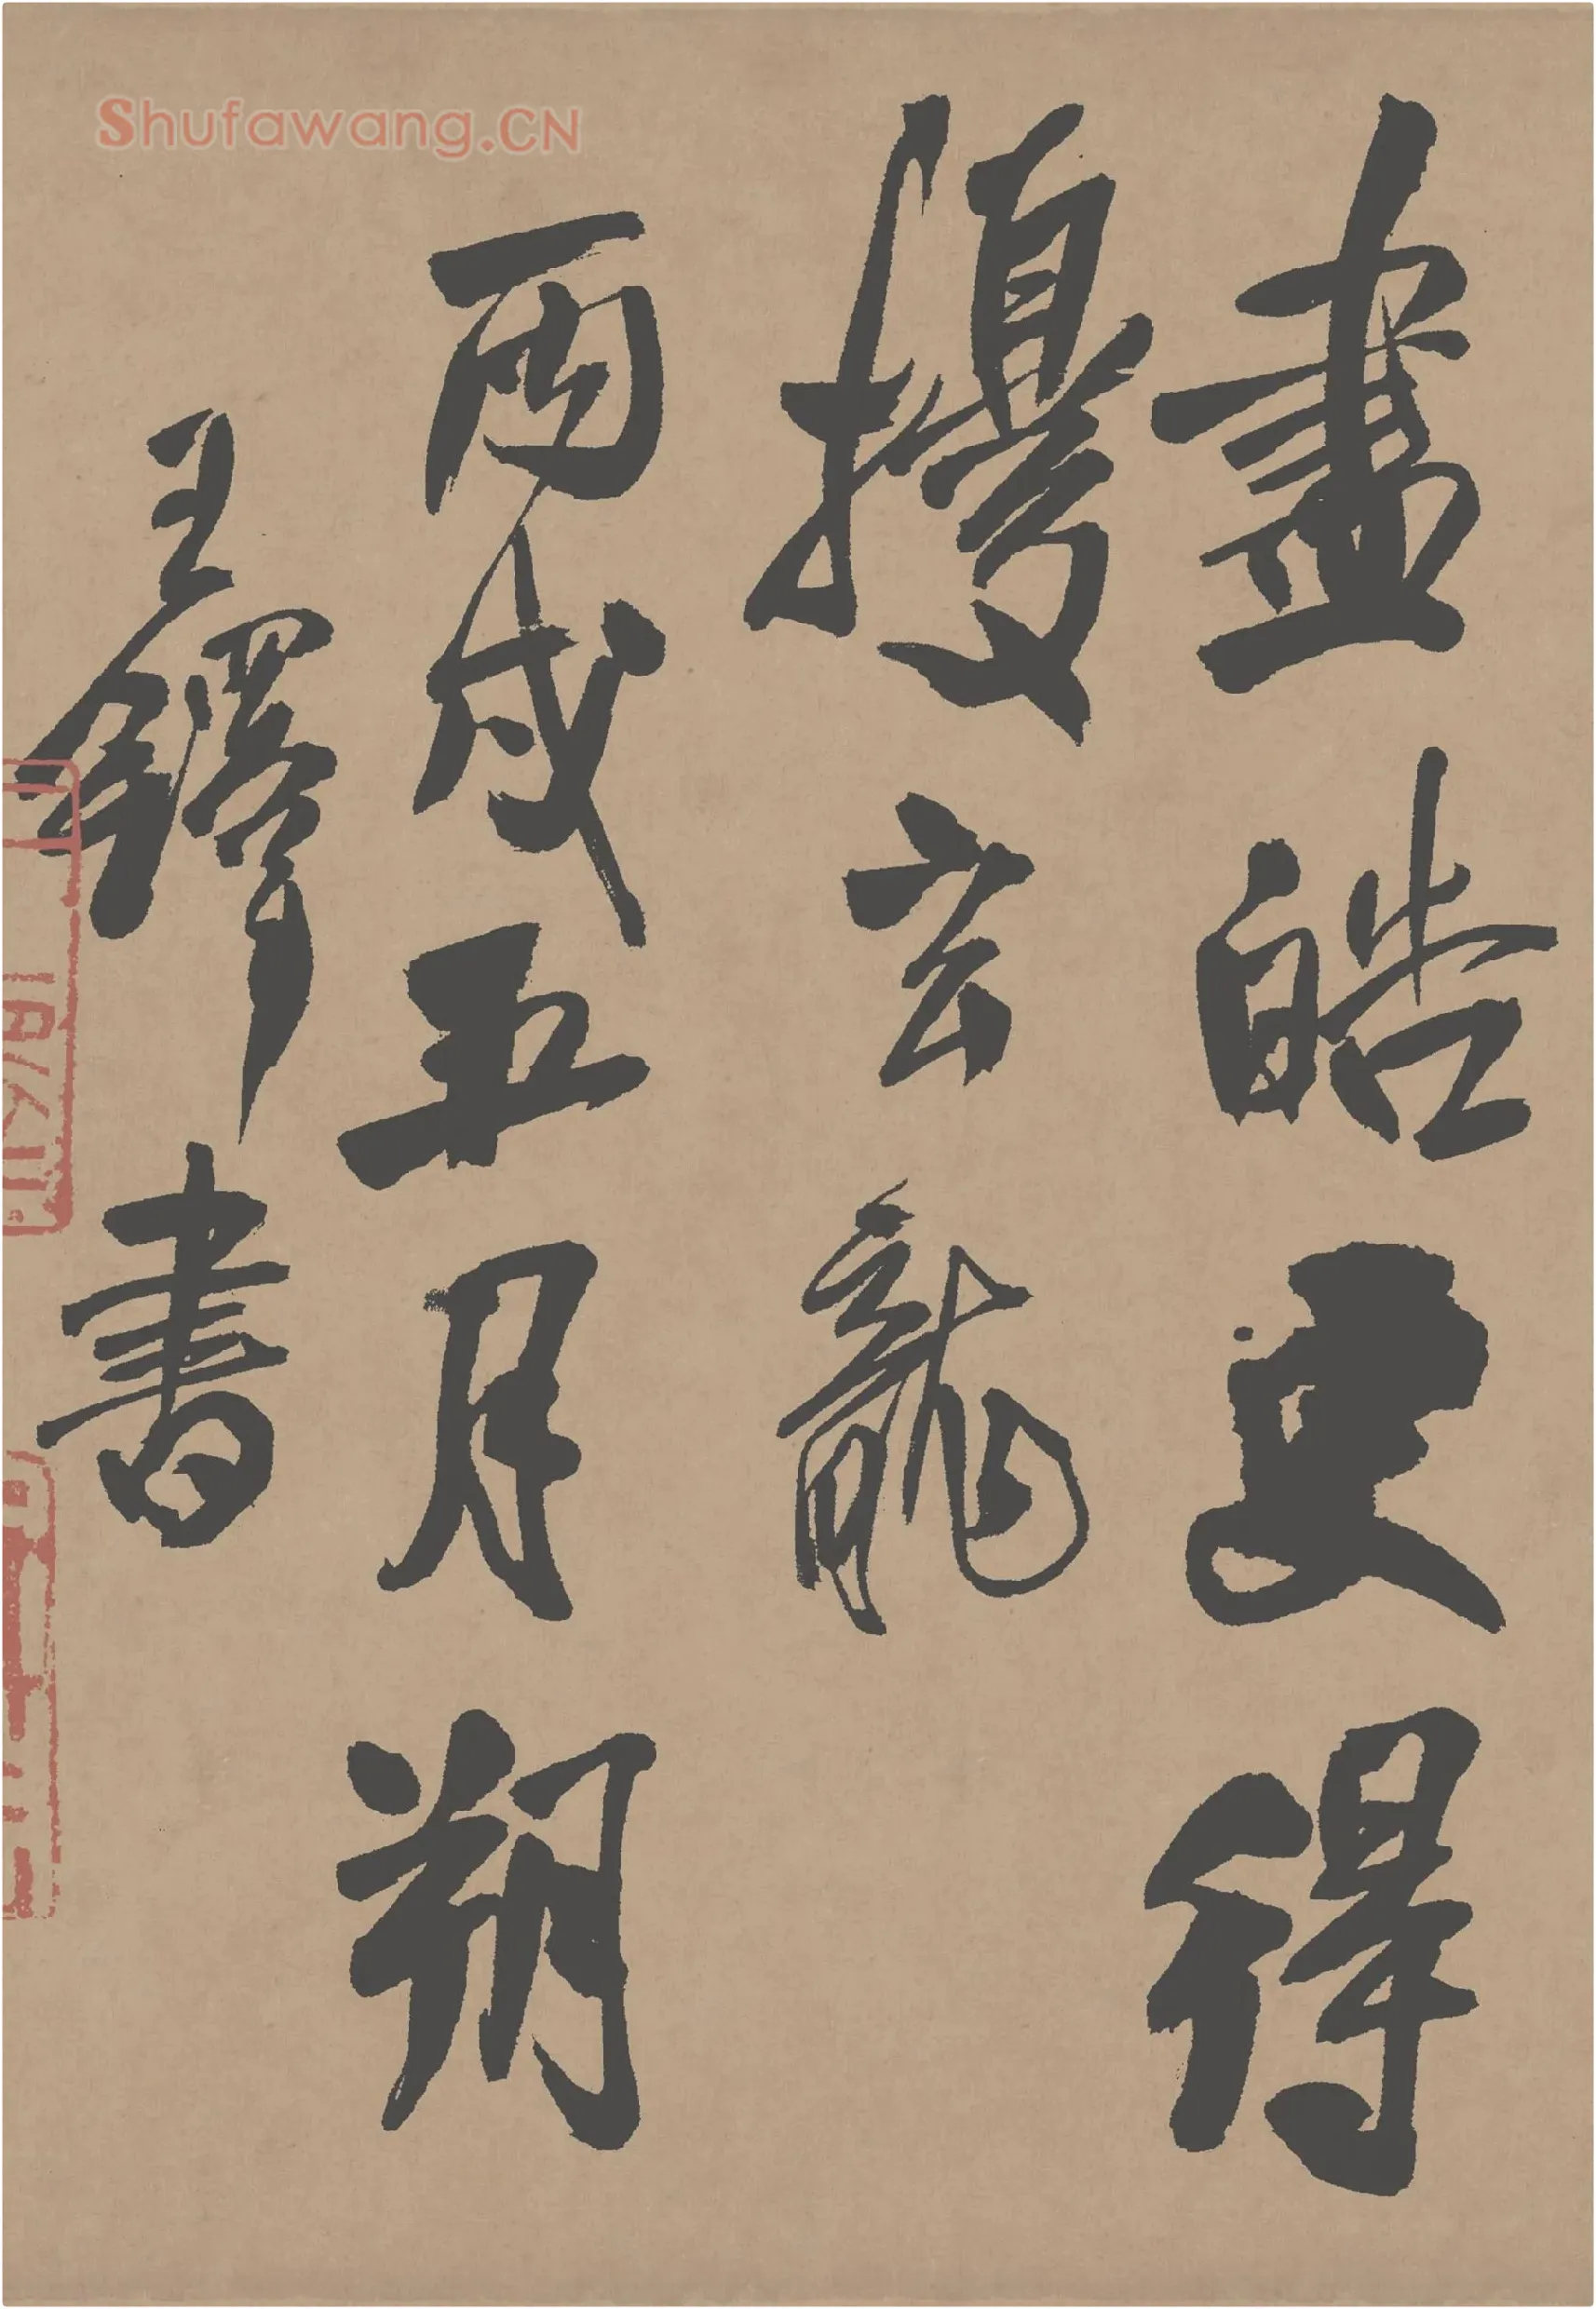 盡皓更得
擾玄龍
丙戌五月朔
王鐸書
Shufawang.CN